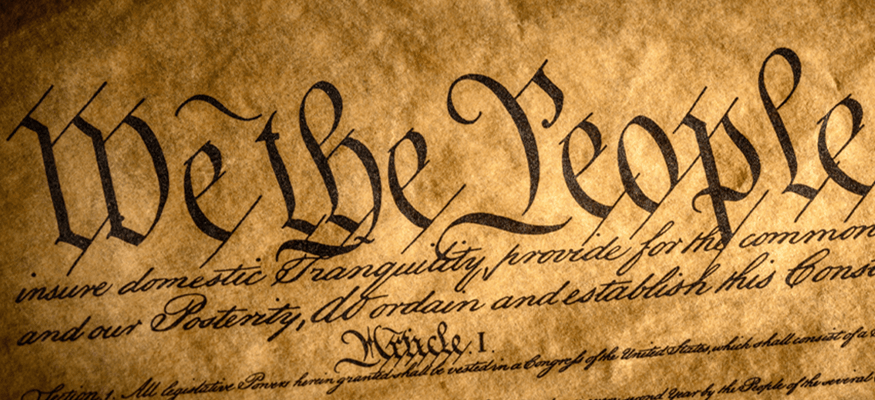 We the People
insure domestic Tranquility, provide for the common
and our Posterity, do ordain and establish this Const
Article. I.
Section. 1. All legislative Powers herein granted shall be vested in a Congress of the United States, which shall consist of a
second Year by the People of the several